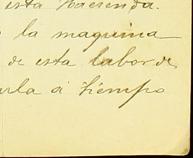 esta Hacienda.
la maquina
de esta labor de
arla á tiempo